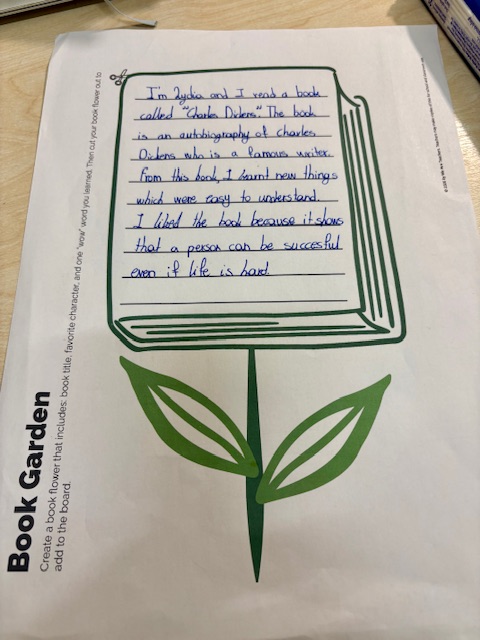 I'm Lydia and I read a book
called "Charles Dickens". The book
is an autobiography of charles
Dickens who is a famous writer.
From this book, I learnt new things
which were easy to understand.
I liked the book because it shows
that a person can be succesful
even if life is hard.
Book Garden
Create a book flower that includes: book title, favorite character, and one "wow" word you learned. Then cut your book flower out to
add to the board.